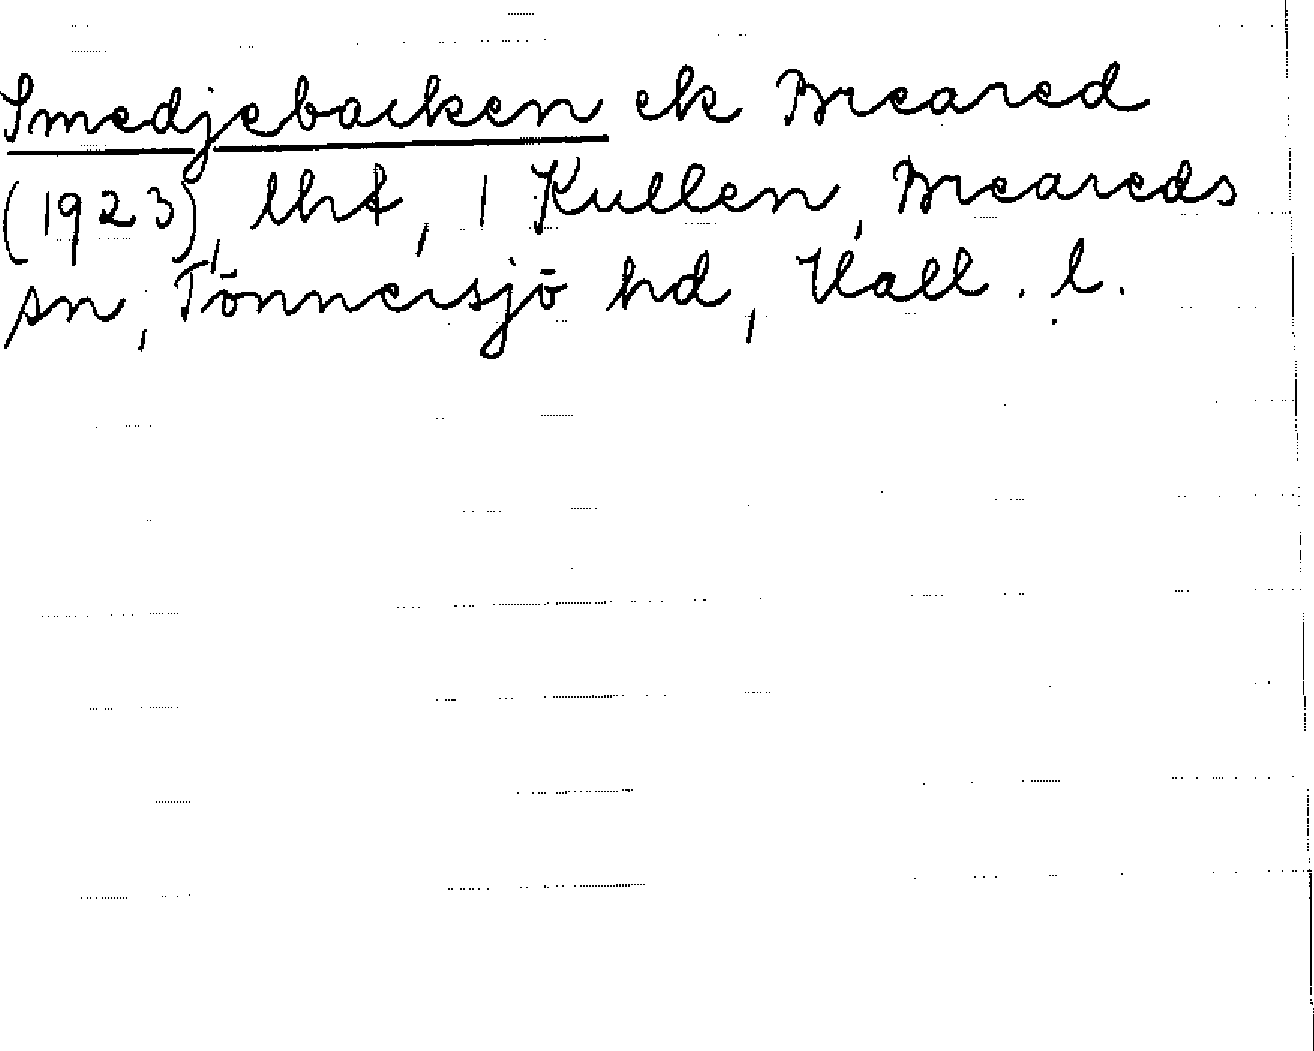 Smedjebacken ek Breared
(1923), lht, 1 Kullen, Breareds
sn, Tönnersjö hd, Hall. l.